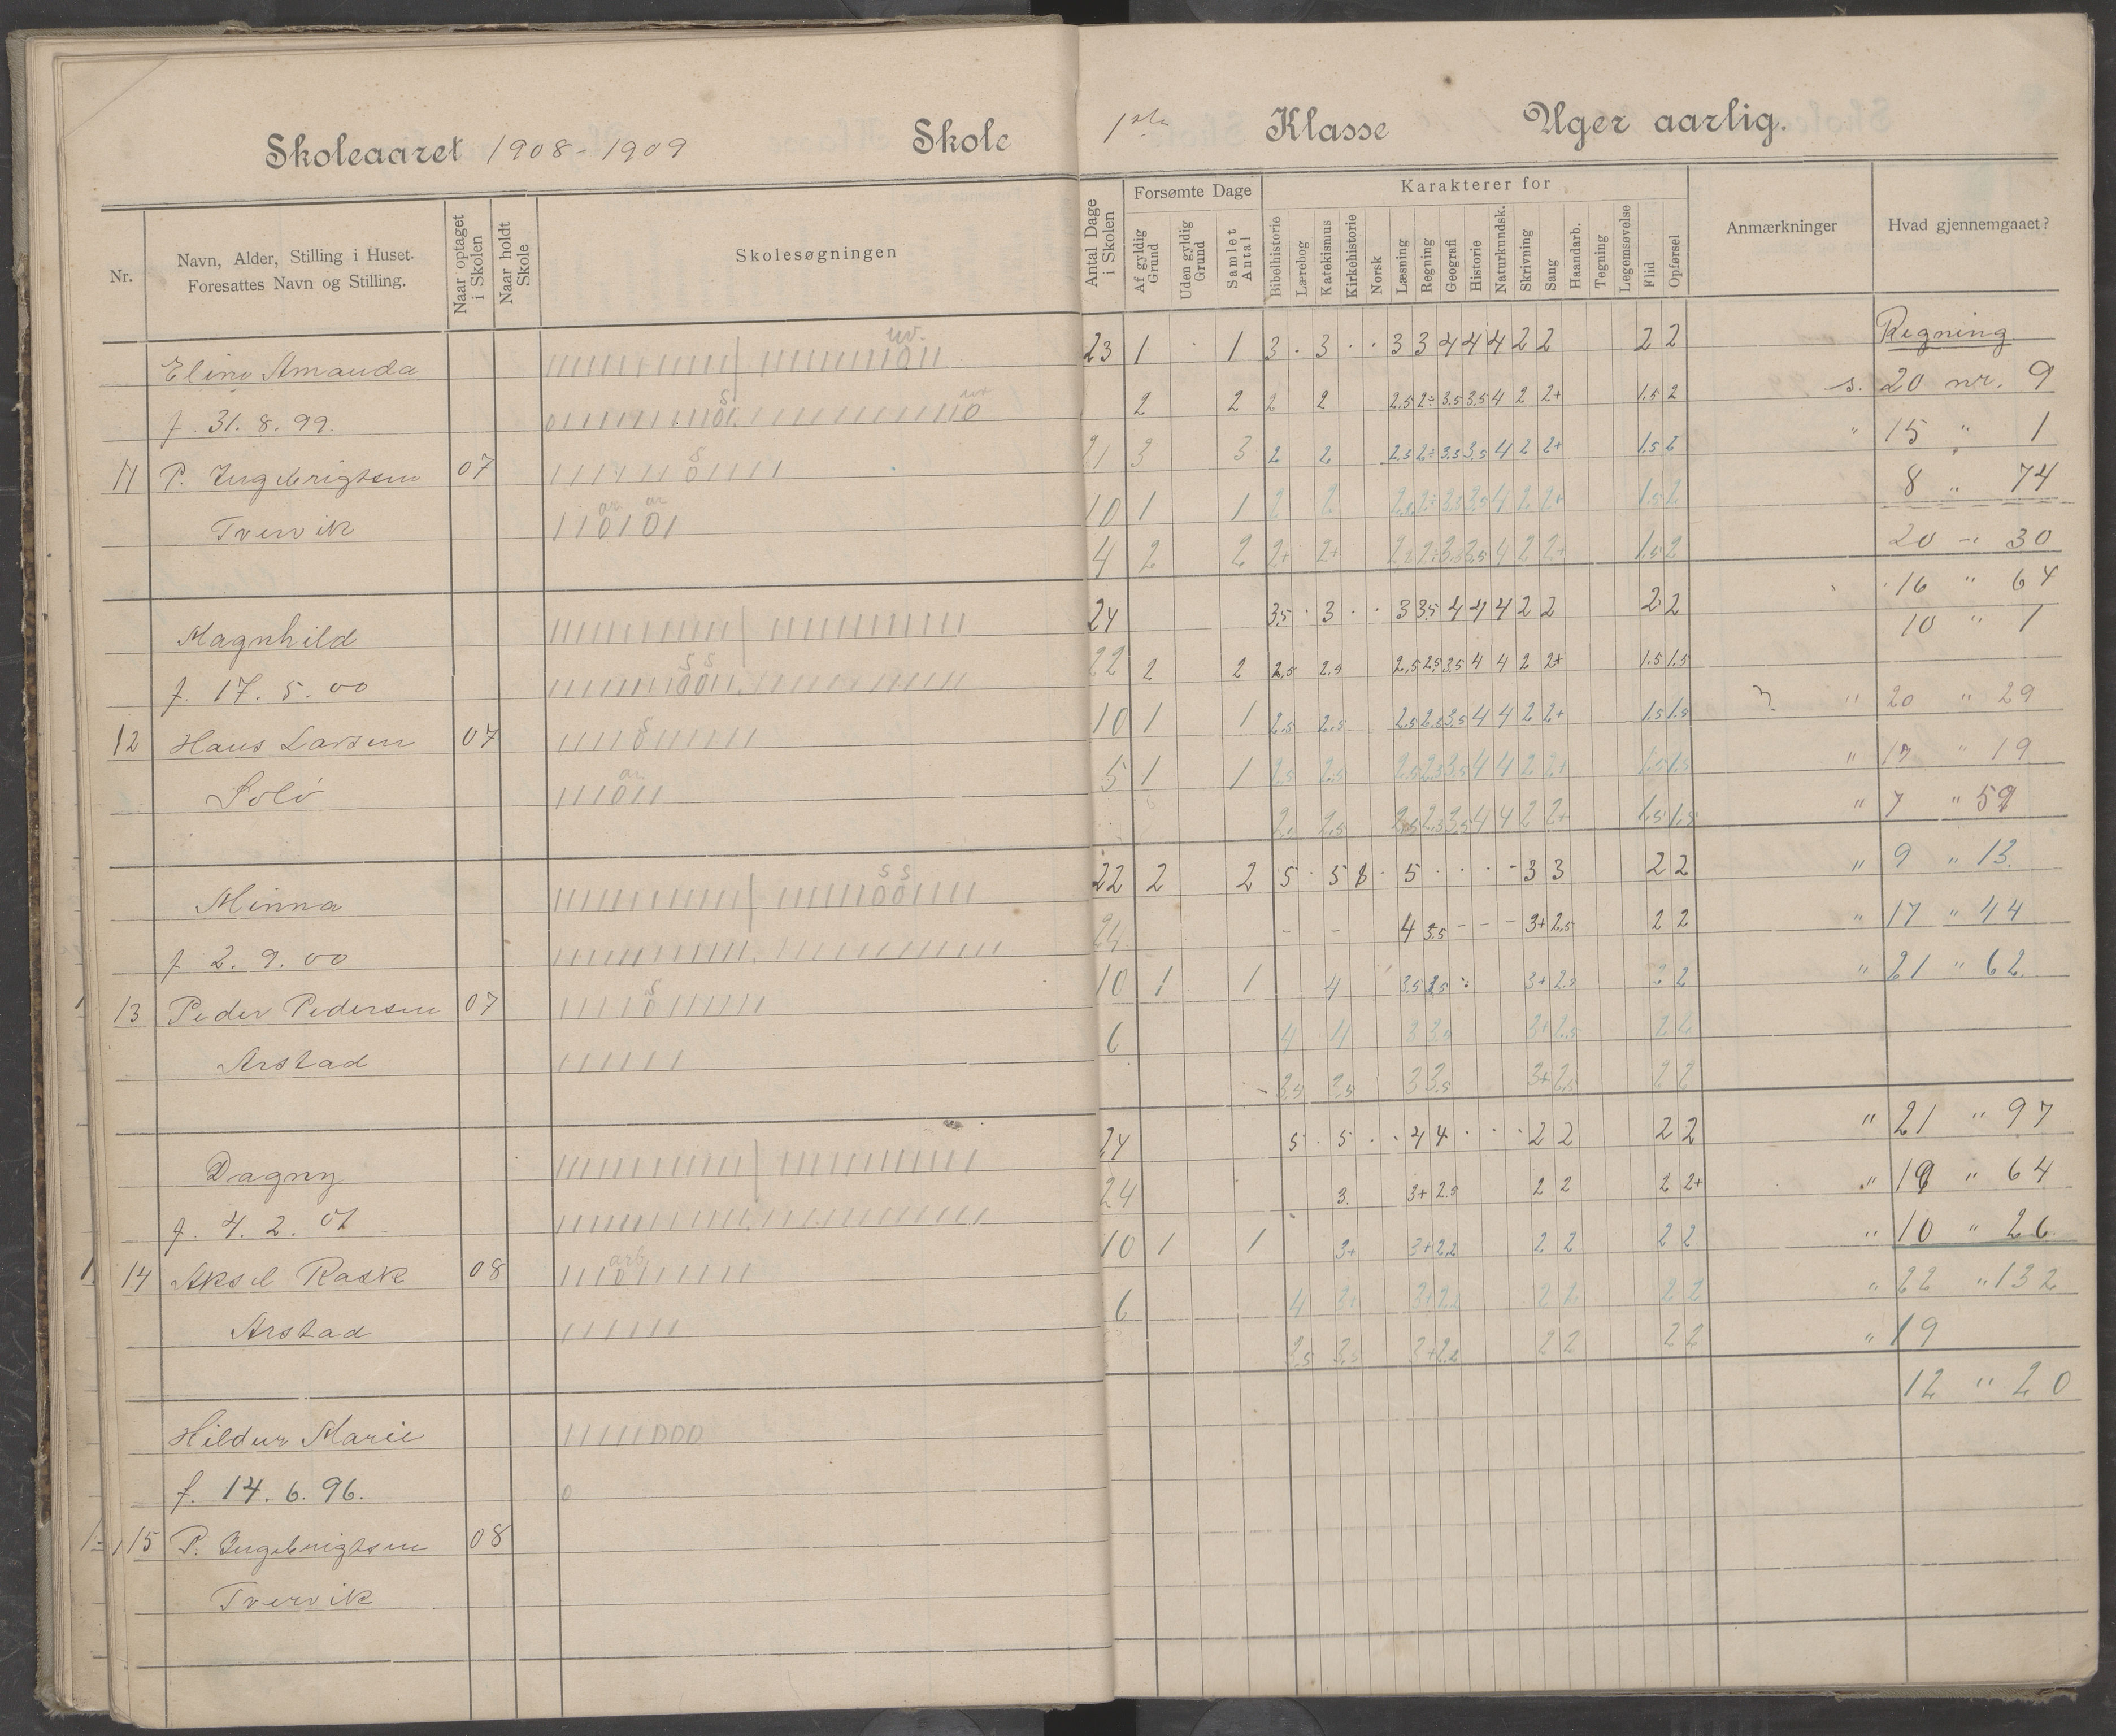 Skoleaaret 1908-1909 Skole 1ste Klasse Uger aarlig.
Nr.
Navn, Alder, Stilling i Huset.
Foresattes Navn og Stilling.
Naar optaget
i Skolen
Naar holdt
Skole
Skolesøgningen
Antal Dage
i Skolen
Forsømte Dage
Af gyldig
Grund
Uden gyldig
Grund
Samlet
Antal
Karakterer for
Bibelhistorie
Lærebog
Katekismus
Kirkehistorie
Norsk
Læsning
Regning
Geografi
Historie
Naturkundsk.
Skrivning
Sang
Haandarb.
Tegning
Legemsøvelse
Flid
Opførsel
Anmærkninger
Hvad gjennemgaaet?
Eline Amanda
f. 31. 8. 99.
11 P. Ingebrigtsen 07
Tvervik
23 1 1 3 3 3 3 4 4 4 2 2 2 2
2 2 2 2 2.5 2÷ 3.5 3.5 4 2 2+ 1.5 2
21 3 3 2 2 2.5 2÷ 3.5 3.5 4 2 2+ 1.5 2
10 1 1 2 2 4 2 2+ 1.5 2
4 2 2 2+ 2+ 4 2 2+ 1.5 2
Magnhild
f. 17. 5. 00
12 Hans Larsen 07
Solö
24 3.5 3 3 3.5 4 4 4 2 2 2 2
22 2 2 2.5 2.5 2.5 2.5 3.5 4 4 2 2+ 1.5 1.5
10 1 1 2.5 2.5 2.5 2.5 3.5 4 4 2 2+ 1.5 1.5
5 1 1 2.5 2.5 2.5 2.5 3.5 4 4 2 2+ 1.5 1.5
Minna
f 2. 9. 00
13 Peder Pedersen 07
Arstad
22 2 2 5 5 8 5 3 3 2 2
24 - - 4 3.5 - - - 3+ 2.5 2 2
10 1 1 4 3.5 3.5 3+ 2.5 2 2
6 4 4 3 3.5 3+ 2.5 2 2
3.5 3.5 3 3.5 3+ 2.5 2 2
Dagny
f. 4. 2. 01
14 Aksel Rask 08
Arstad
24 5 5 4 4 2 2 2 2
24 3. 3+ 2.5 2 2 2 2+
10 1 1 3+ 3+ 2.2 2 2 2 2
6 4 3+ 3+ 2.2 2 2 2 2
3.5 3.5 3+ 2.2 2 2 2 2
Hildur Marie
f. 14. 6. 96.
15 P. Ingebrigtsen 08
Tvervik
Regning
s. 20 nr. 9
" 15 " 1
8 " 74
20 " 30
16 " 64
10 " 1
" 20 " 29
" 17 " 19
" 7 " 59
" 9 " 13.
" 17 " 44
" 21 " 62
" 21 " 97
" 18 " 64
" 10 " 26
" 22 " 132
" 19
12 " 20